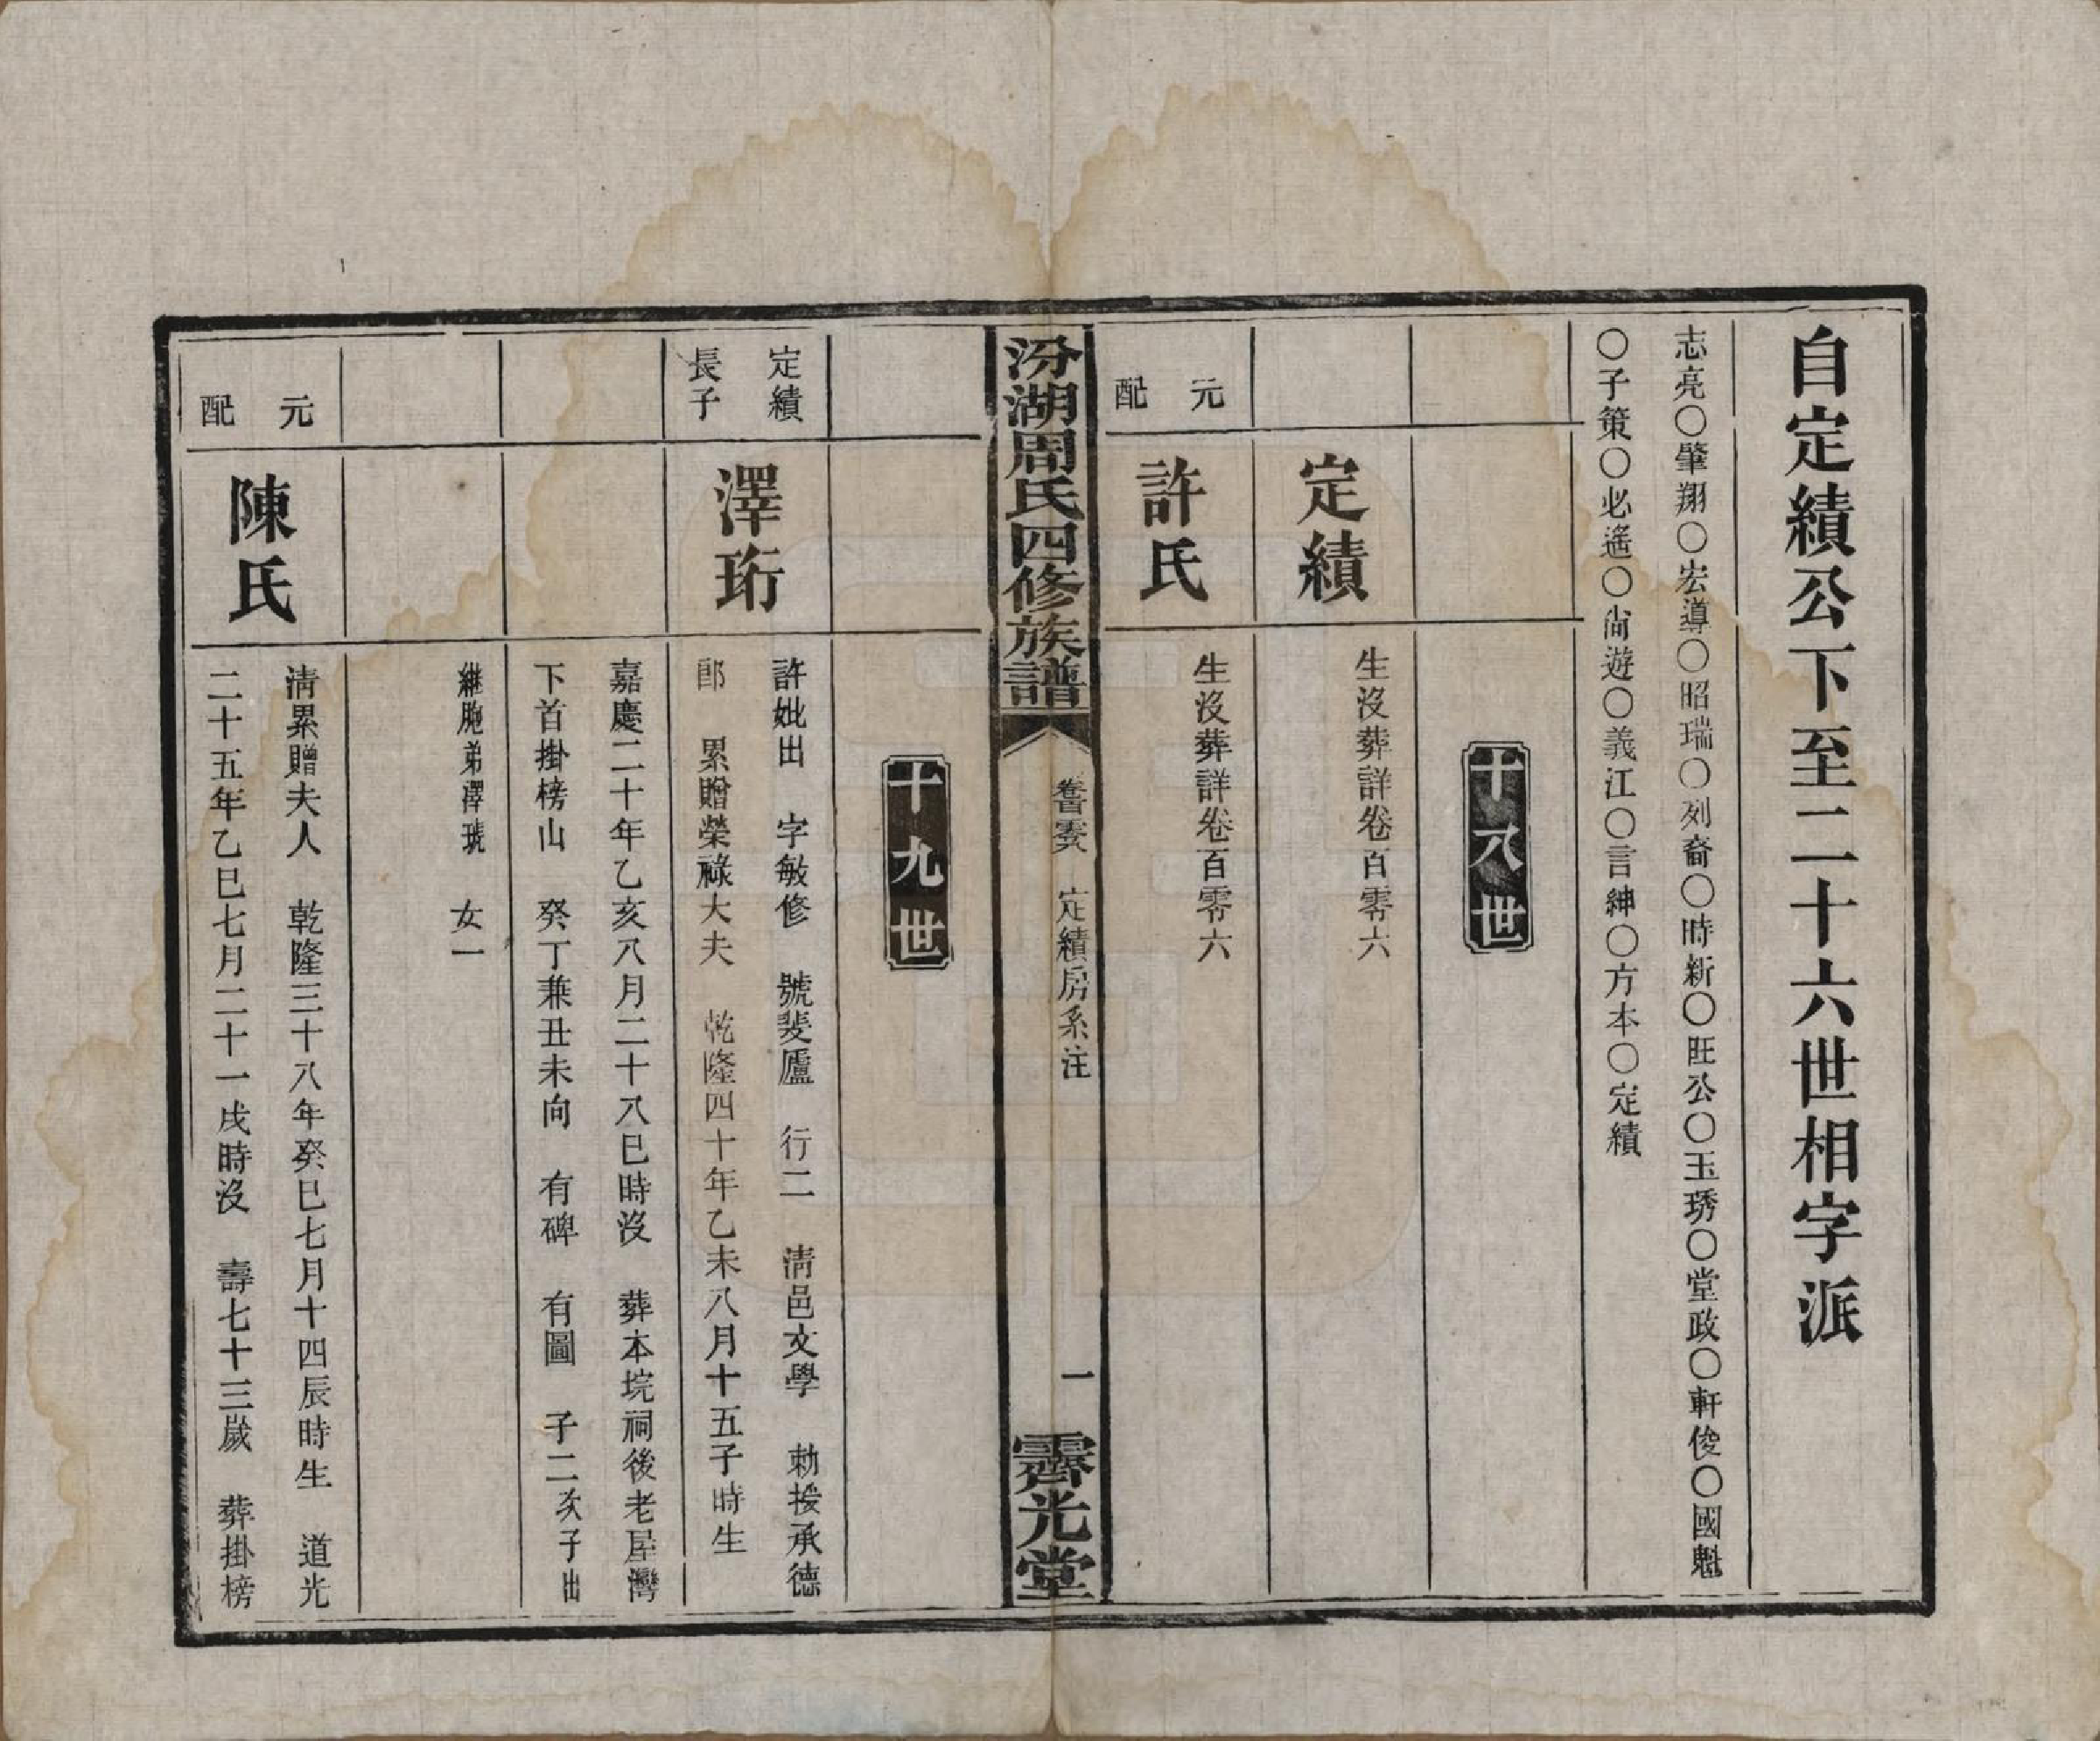 自定績公下至二十六世相字派
志亮〇肇翔〇宏導〇昭瑞〇列裔〇時新〇旺公〇玉琇〇堂政〇軒俊〇國魁
〇子策〇必遙〇尙遊〇義江〇言紳〇方本〇定績
十八世
定績
生沒葬詳卷百零六
元配
許氏
生沒葬詳卷百零六
汾湖周氏四修族譜
卷百零八 定績房系注
一
霽光堂
十九世
定績
長子
澤珩
許妣出 字敏修 號斐廬 行二 淸邑文學 勅援承德
郎 累贈榮祿大夫 乾隆四十年乙未八月十五子時生
嘉慶二十年乙亥八月二十八巳時沒 葬本垸祠後老屋灣
下首掛榜山 癸丁兼丑未向 有碑 有圖 子二次子出
繼胞弟澤琥 女一
元配
陳氏
淸累贈夫人 乾隆三十八年癸巳七月十四辰時生 道光
二十五年乙巳七月二十一戌時沒 壽七十三歲 葬掛榜